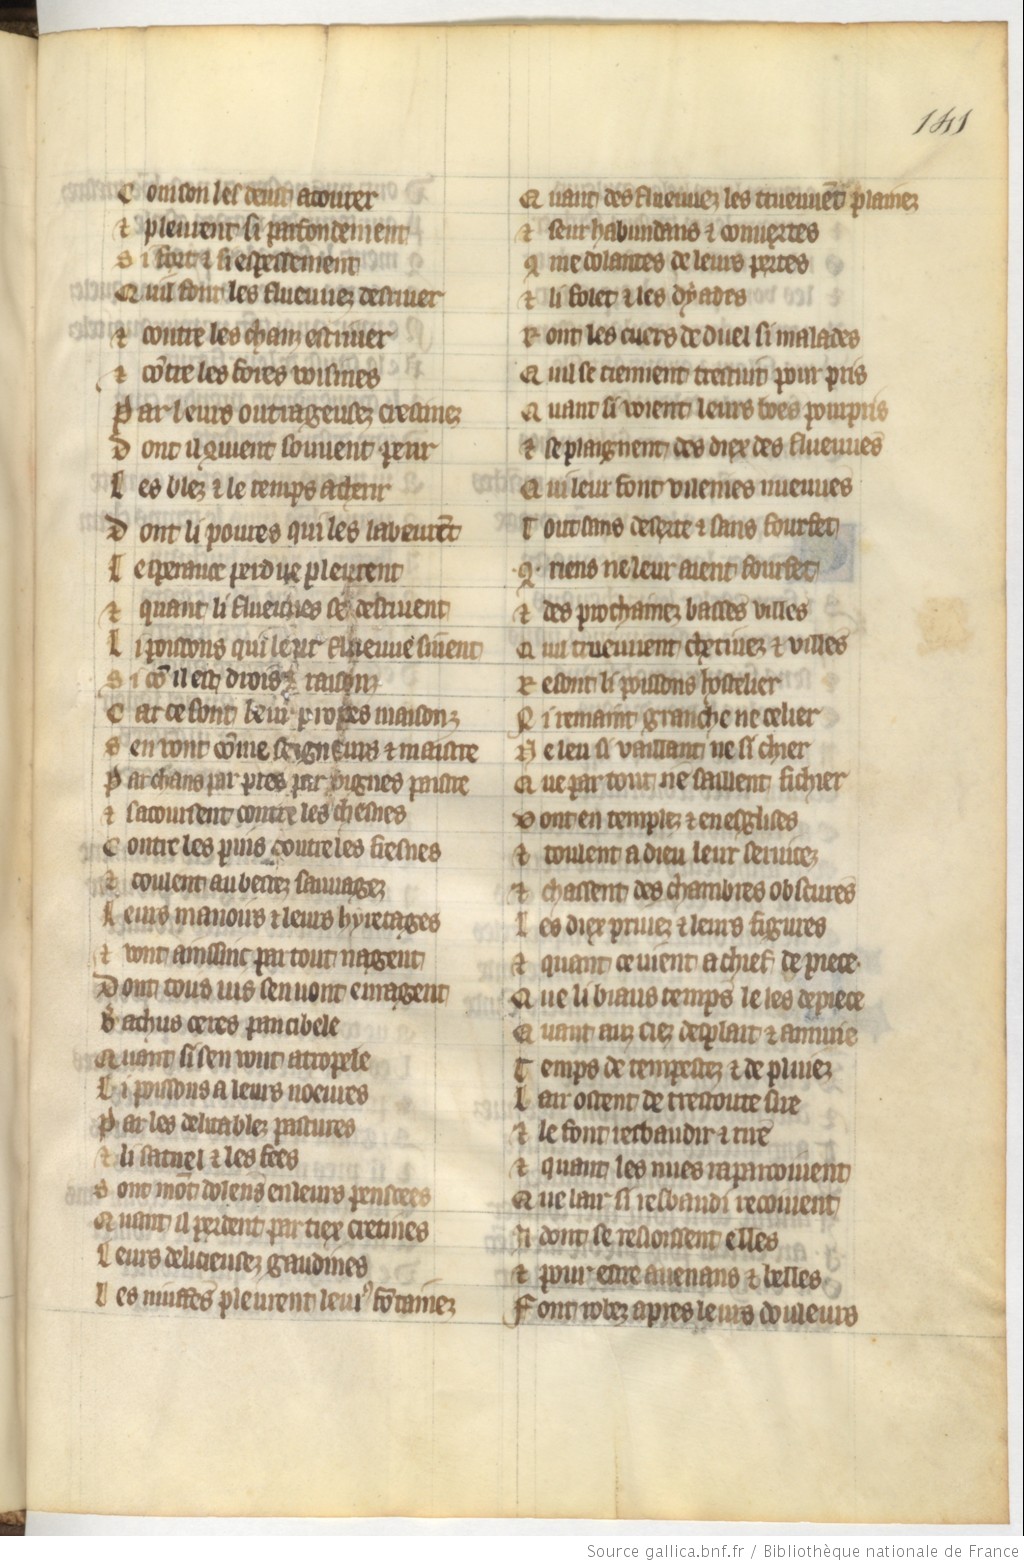 141
Com son les deust acouter
⁊ pleurent si parfondement
Si fort ⁊ si espessement
Quil font les flueuuez desriuer
⁊ contre les chans estriuer
⁊ cōtre les fores voisines
Par leurs outrageusez cretinez
Dont il ꝯuient souuent perir
Les blez ⁊ le temps acherir
Dont li poures qui les labeurēt
Lesperance perdue pleurent
⁊ quant li flueuues se desriuent
Li poissons qui leur flueuue siuent
Si cō il est drois ⁊ raison
Car ce sont leur propes maisonz
Sen vont cōme seigneurs ⁊ maistre
Par chans par pres par vignes paistre
⁊ sacoursent contre les chesnes
Contre les pins contre les fresnes
⁊ toulent au bestez sauuagez
Leurs manoirs ⁊ leurs hyretages
⁊ vont ainssinc partout nagent
Dont tous uis sen uont enragent
Bachus ceres pan cibele
Quant si sen vont atropele
Li poissons a leurs noeures
Par les delitablez pastures
⁊ li satirel ⁊ les fees
Sont mōt dolens en leurs pensees
Quant il perdent par tiex cretines
Leurs delicieusez gaudines
Les ninffes pleurent leurs fōtainez
Quant des flueuuez les trueuuēt plainez
⁊ seur habundans ⁊ couuertes
Cōme dolantes de leurs pertes
⁊ li folet ⁊ les dyades
Ront les cuers de duel si malades
Quil se tiennent trestuit pour pris
Quant si voient leurs bois pourpris
⁊ se plaignent des diex des flueuues
Qui leur font vilenies nueuues
Tout sans deserte ⁊ sans fourfet
Q̄ riens ne leur aient fourfet
⁊ des prochainez basses villes
Qui trueuuent chetiuez ⁊ villes
Resont li poissons hostelier
Ni remaint granche ne celier
Ne leu si vaillant ne si chier
Que partout ne saillent fichier
Vont en templez ⁊ en esglises
⁊ toulent a dieu leur seruicez
⁊ chassent des chambres obscures
Les diex priuez ⁊ leurs figures
⁊ quant ce vient a chief de piece
Que li biaus temps le les depiece
Quant auz ciez desplait ⁊ annuie
Temps de tempestez ⁊ de pluiez
Lair ostent de trestoute sire
⁊ le font resbaudir ⁊ rire
⁊ quant les nues raparcoiuent
Que lair si resbaudi recoiuent
A dont se resioissent elles
⁊ pour estre auenans ⁊ belles
Font robez apres leurs douleurs
Source gallica.bnf.fr / Bibliothèque nationale de France